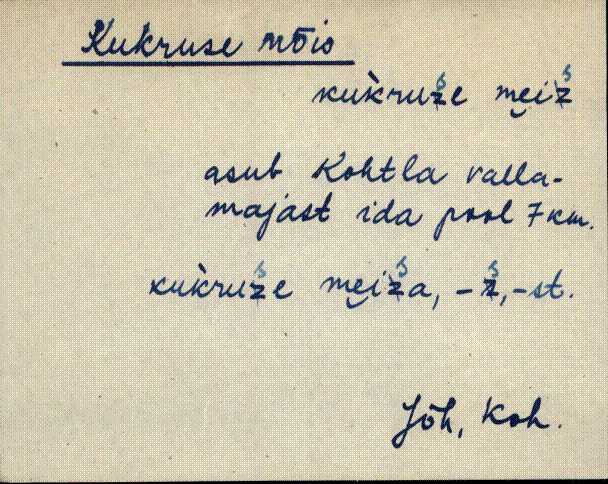 Kukruse mõis
kùkruze meiz
asub Kohtla valla-
majast ida pool 7 km.
kùkruze meiza, -z, -st.
Jõh, Koh.